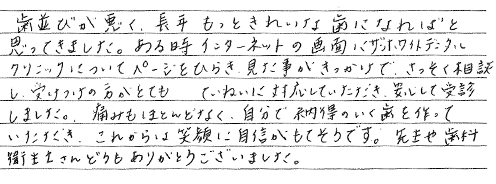 歯並びが悪く、長年 もっときれいな歯になればと
思ってきました。ある時インターネットの画面にザホワイトデンタル
クリニックについてページをひらき、見た事がきっかけで、さっそく相談
し、受けつけの方がとても ていねいに対応していただき、安心して受診
しました。痛みもほとんどなく、自分で納得のいく歯を作って
いただき、これからは笑顔に自信がもてそうです。先生や歯科
衛生士さんどうもありがとうございました。